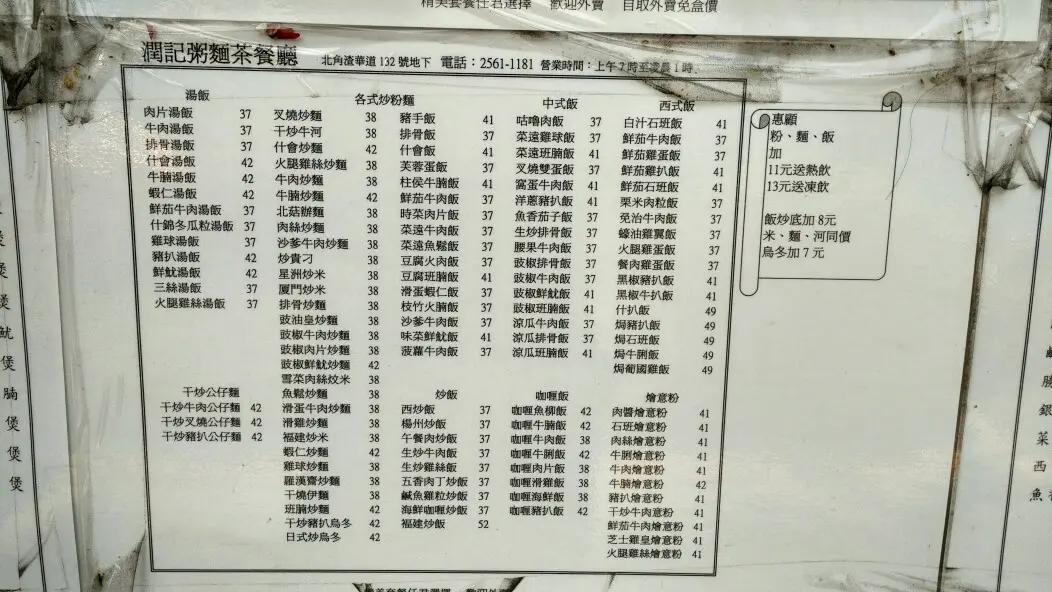 精美套餐任君選擇 歡迎外賣 自取外賣免盒價
潤記粥麵茶餐廳 北角渣華道 132 號地下 電話：2561-1181 營業時間：上午 7 時至凌晨 1 時
湯飯
肉片湯飯 37
牛肉湯飯 37
排骨湯飯 37
什會湯飯 42
牛腩湯飯 42
蝦仁湯飯 42
鮮茄牛肉湯飯 37
什錦冬瓜粒湯飯 37
雞球湯飯 37
豬扒湯飯 42
鮮魷湯飯 42
三絲湯飯 37
火腿雞絲湯飯 37
干炒公仔麵
干炒牛肉公仔麵 42
干炒叉燒公仔麵 42
干炒豬扒公仔麵 42
各式炒粉麵
叉燒炒麵 38
干炒牛河 38
什會炒麵 42
火腿雞絲炒麵 38
牛肉炒麵 38
牛腩炒麵 42
北菇辦麵 38
肉絲炒麵 38
沙爹牛肉炒麵 38
炒貴刁 38
星洲炒米 38
廈門炒米 38
排骨炒麵 38
豉油皇炒麵 38
豉椒牛肉炒麵 38
豉椒肉片炒麵 38
豉椒鮮魷炒麵 42
雪菜肉絲炆米 38
魚鬆炒麵 38
滑蛋牛肉炒麵 38
滑雞炒麵 38
福建炒米 38
蝦仁炒麵 42
雞球炒麵 38
羅漢齋炒麵 38
干燒伊麵 38
班腩炒麵 42
干炒豬扒烏冬 42
日式炒烏冬 42
豬手飯 41
排骨飯 37
什會飯 41
芙蓉蛋飯 37
柱侯牛腩飯 41
鮮茄牛肉飯 37
時菜肉片飯 37
菜遠牛肉飯 37
菜遠魚鬆飯 37
豆腐火肉飯 37
豆腐班腩飯 41
滑蛋蝦仁飯 37
枝竹火腩飯 37
沙爹牛肉飯 37
味菜鮮魷飯 41
菠蘿牛肉飯 37
炒飯
西炒飯 37
楊州炒飯 37
午餐肉炒飯 37
生炒牛肉飯 37
生炒雞絲飯 37
五香肉丁炒飯 37
鹹魚雞粒炒飯 37
海鮮咖喱炒飯 37
福建炒飯 52
中式飯
咕嚕肉飯 37
菜遠雞球飯 37
菜遠班腩飯 41
叉燒雙蛋飯 37
窩蛋牛肉飯 37
洋蔥豬扒飯 41
魚香茄子飯 37
生炒排骨飯 37
腰果牛肉飯 37
豉椒排骨飯 37
豉椒牛肉飯 37
豉椒鮮魷飯 41
豉椒班腩飯 41
涼瓜牛肉飯 37
涼瓜排骨飯 37
涼瓜班腩飯 41
咖喱飯
咖喱魚柳飯 42
咖喱牛腩飯 42
咖喱牛肉飯 38
咖喱牛脷飯 42
咖喱肉片飯 38
咖喱滑雞飯 38
咖喱海鮮飯 38
咖喱豬扒飯 42
西式飯
白汁石班飯 41
鮮茄牛肉飯 37
鮮茄雞蛋飯 37
鮮茄雞扒飯 41
鮮茄石班飯 41
栗米肉粒飯 37
免治牛肉飯 37
蠔油雞翼飯 37
火腿雞蛋飯 37
餐肉雞蛋飯 37
黑椒豬扒飯 41
黑椒牛扒飯 41
什扒飯 49
焗豬扒飯 49
焗石班飯 49
焗牛脷飯 49
焗葡國雞飯 49
燴意粉
肉醬燴意粉 41
石班燴意粉 41
肉絲燴意粉 41
牛脷燴意粉 41
牛肉燴意粉 41
牛腩燴意粉 42
豬扒燴意粉 41
干炒牛肉意粉 41
鮮茄牛肉燴意粉 41
芝士雞皇燴意粉 41
火腿雞絲燴意粉 41
惠顧
粉、麵、飯
加
11元送熱飲
13元送凍飲
飯炒底加 8元
米、麵、河同價
烏冬加 7 元
煲
煲
魷
煲
腩
煲
煲
煲
銀
菜
西
魚